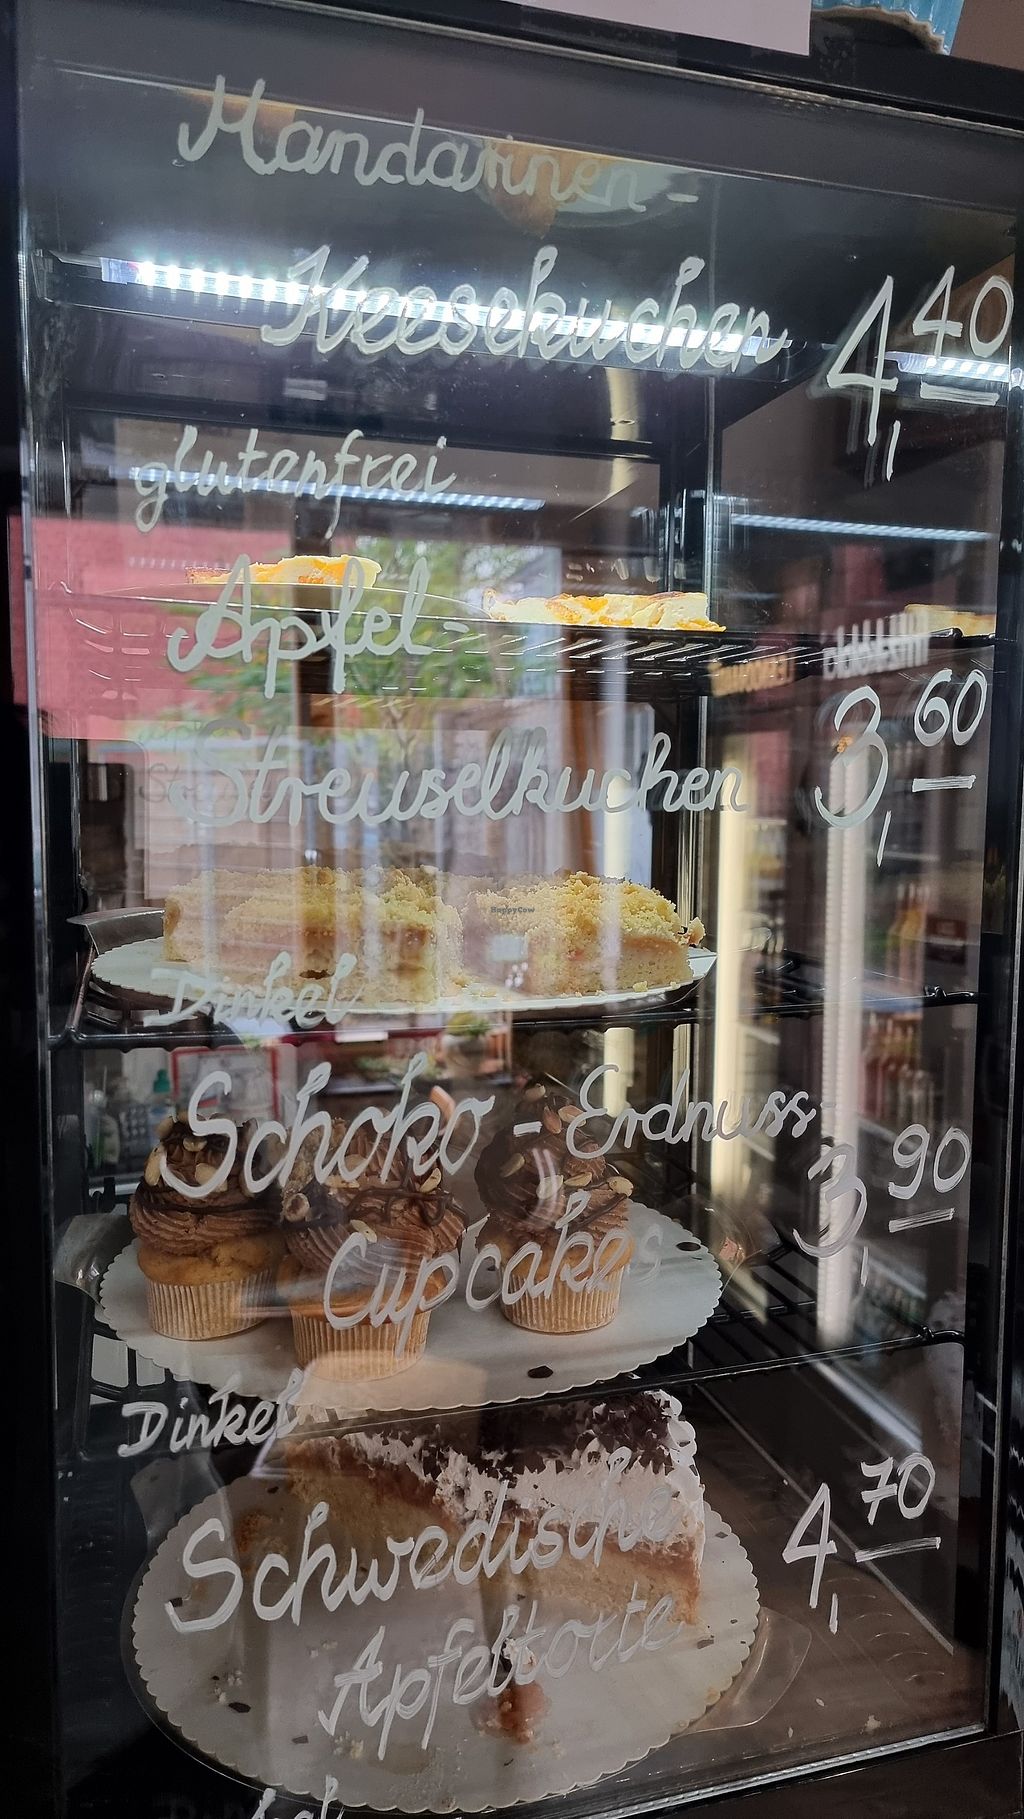 Mandarinen-
Keesekuchen 4,40
glutenfrei
Apfel-
Streuselkuchen 3,60
Dinkel
Schoko - Erdnuss-
Cupcakes 3,90
Dinkel
Schwedische
Apfeltorte 4,70
HappyCow